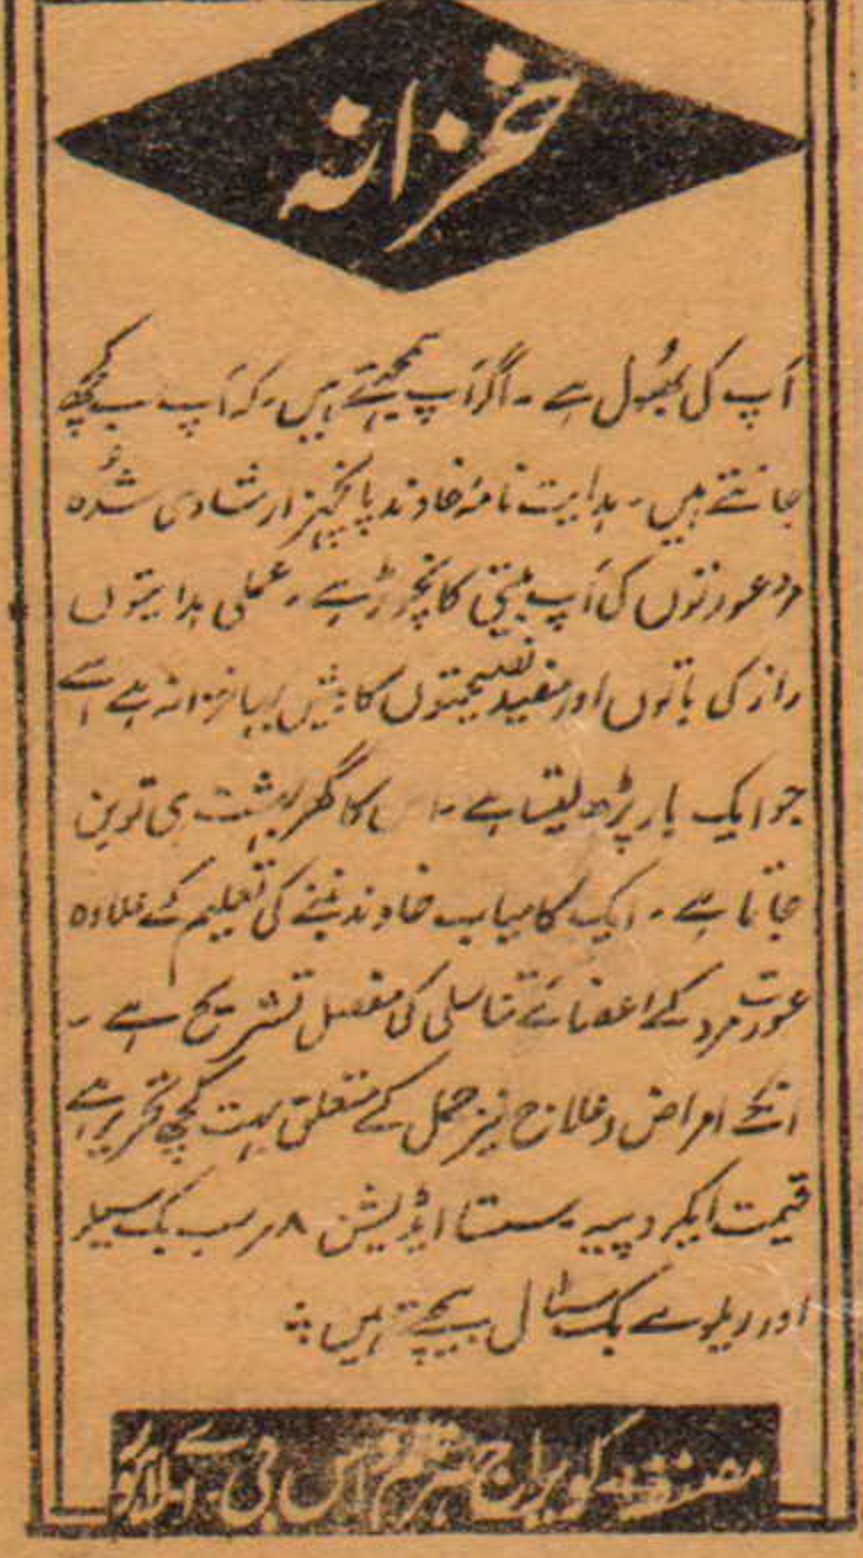 خزانہ
آپ کی بھُول ہے ۔ اگر آپ سمجھتے ہیں ۔ کہ آپ سب کچھ
جانتے ہیں ۔ ہدایت نامۂ خاوند پانچہزار شادی شُدہ
مرد عورتوں کی آپ بیتی کا نچوڑ ہے ۔ عملی ہدایتوں
راز کی باتوں اور مفید نصیحتوں کا بیش بہا خزانہ ہے اسے
جو ایک بار پڑھ لیتا ہے ۔ اس کا گھر بہشت ہی تو بن
جاتا ہے ۔ ایک کامیاب خاوند بننے کی تعلیم کے علاوہ
عورت مرد کے اعضائے تناسلی کی مفصل تشریح ہے ۔
انکے امراض و علاج نیز حمل کے متعلق بہت کچھ تحریر ہے
قیمت ایکروپیہ سستا ایڈیشن ۸ر سب بک سیلر
اور ریلوے بک سٹال بیچتے ہیں ۔
مصنفہ کویراج ہرنام داس بی ۔ اے لاہور